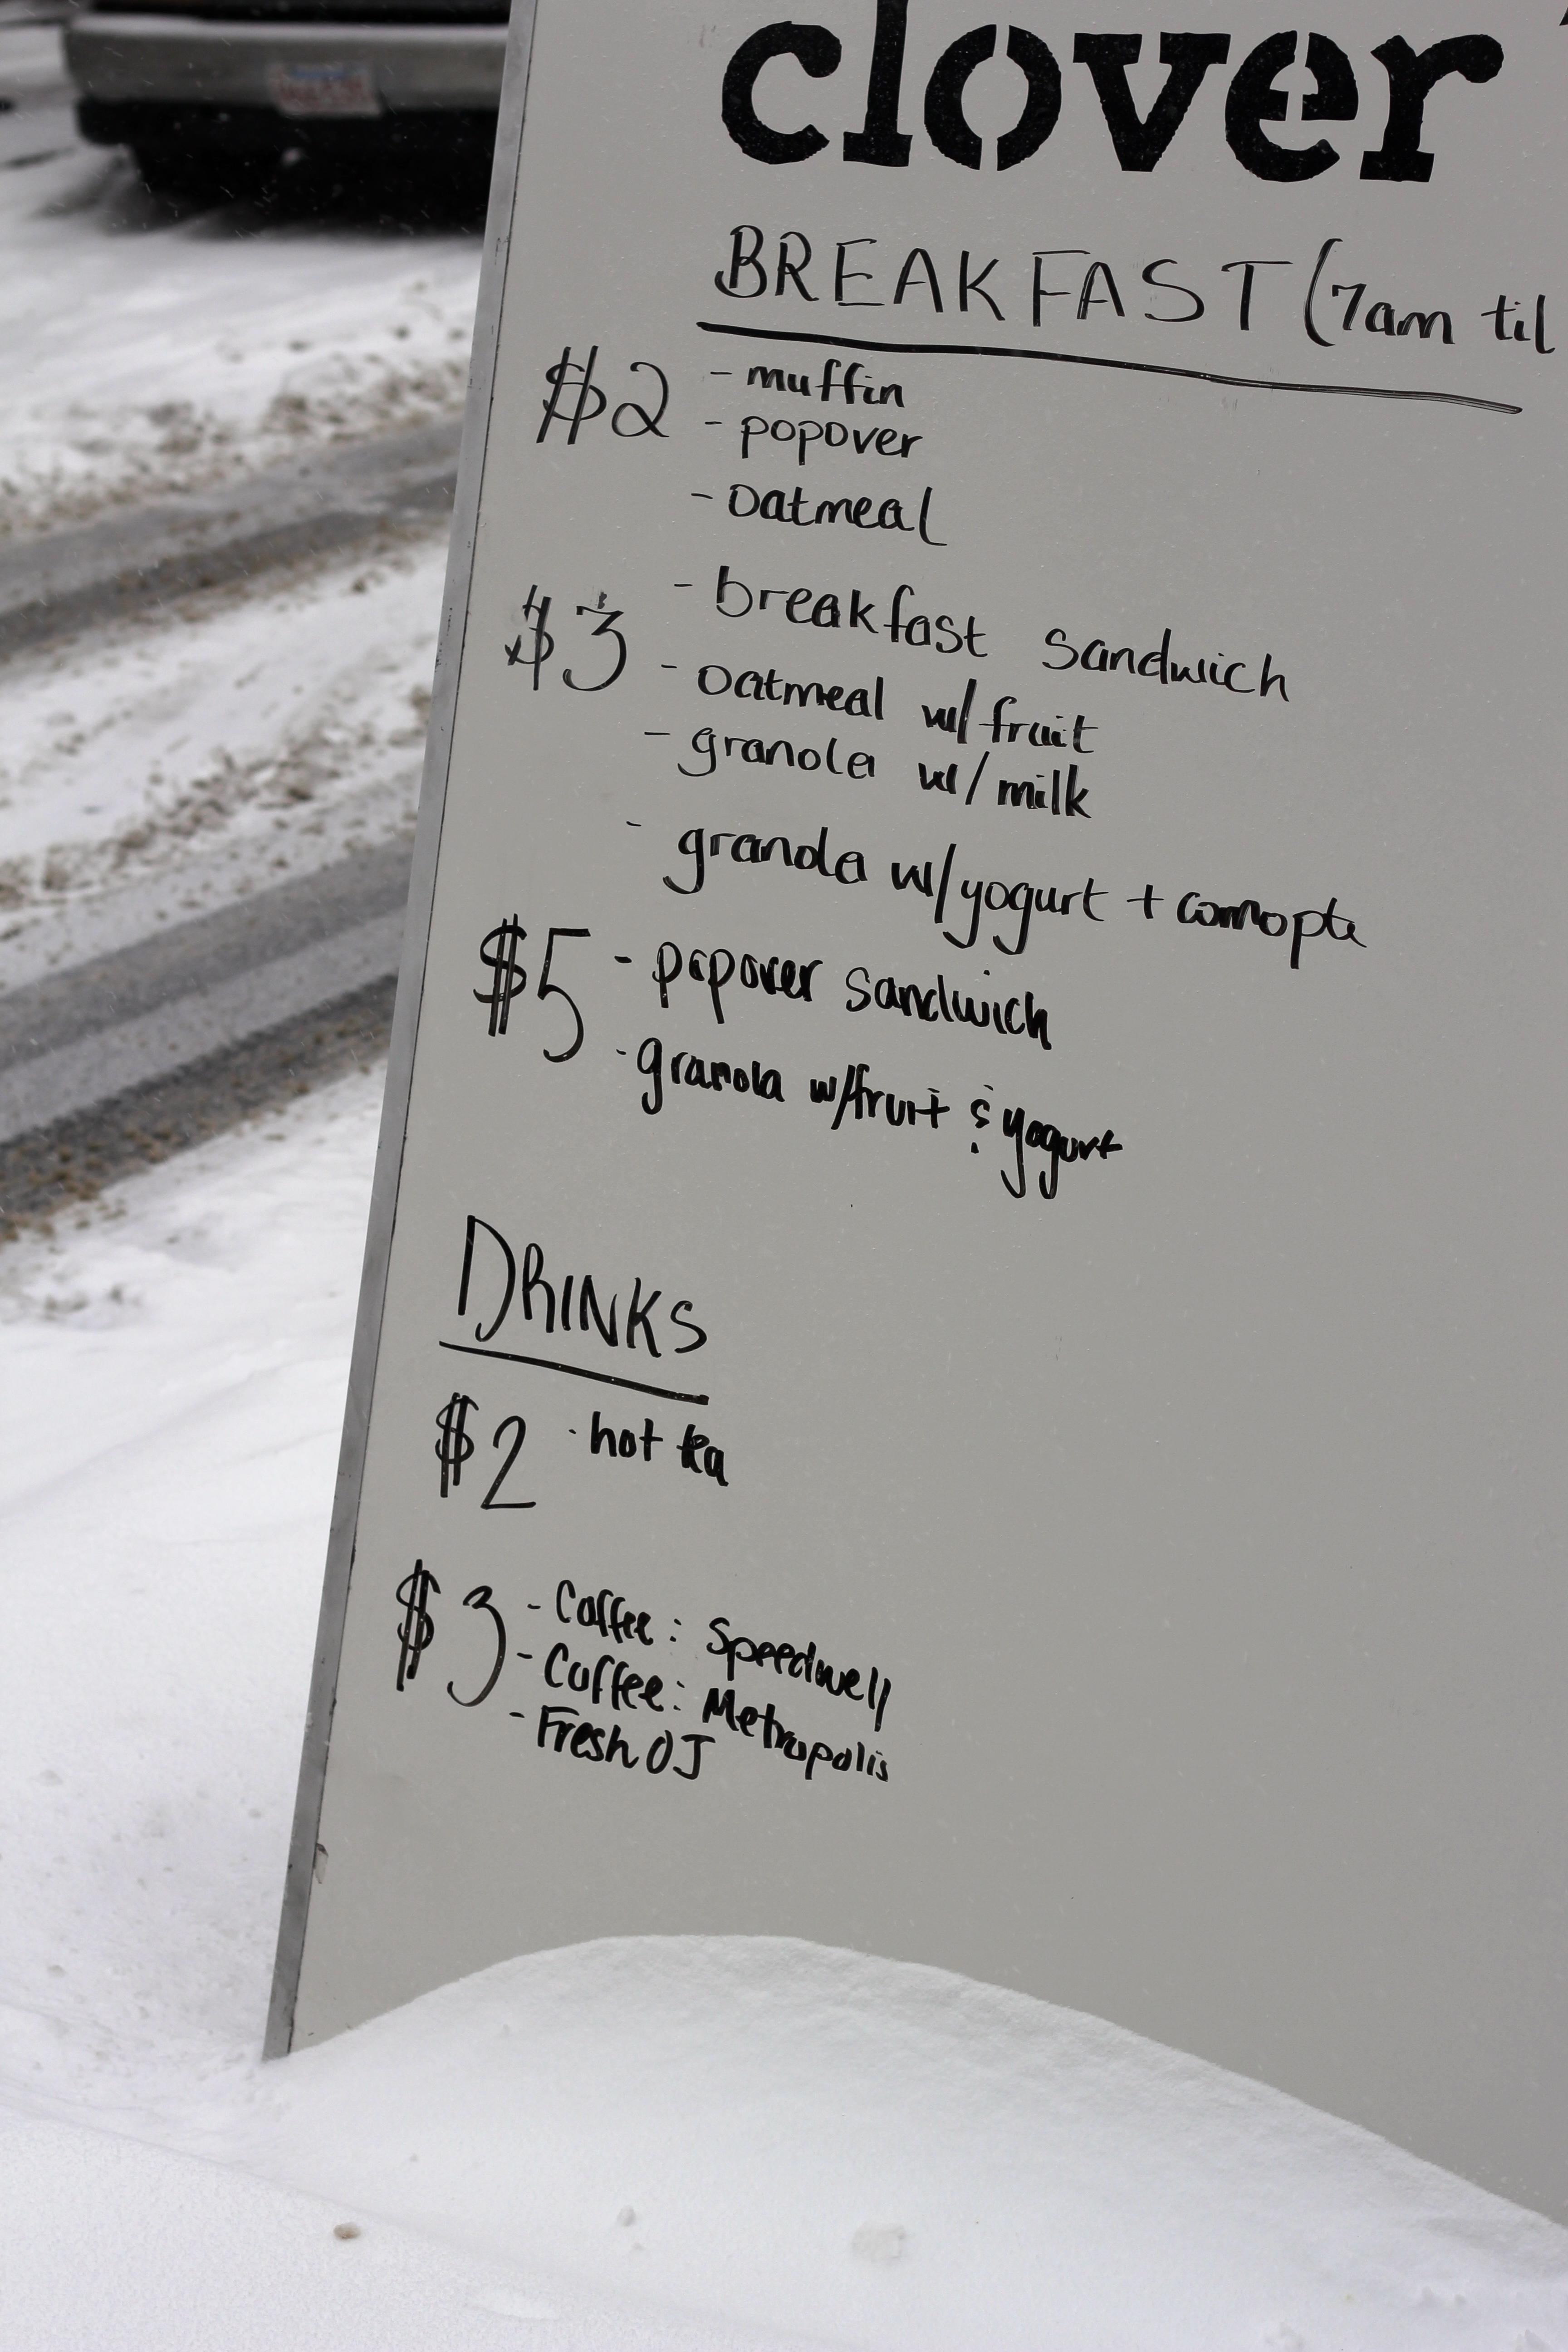 clover
BREAKFAST (7am til
$2 - muffin
- popover
- oatmeal
$3 - breakfast sandwich
- oatmeal w/ fruit
- granola w/ milk
- granola w/ yogurt +
$5 - popover sandwich
- granola w/ fruit & yogurt
DRINKS
$2 - hot tea
$3 - Coffee: Speedwell
- Coffee: Metropolis
- Fresh OJ